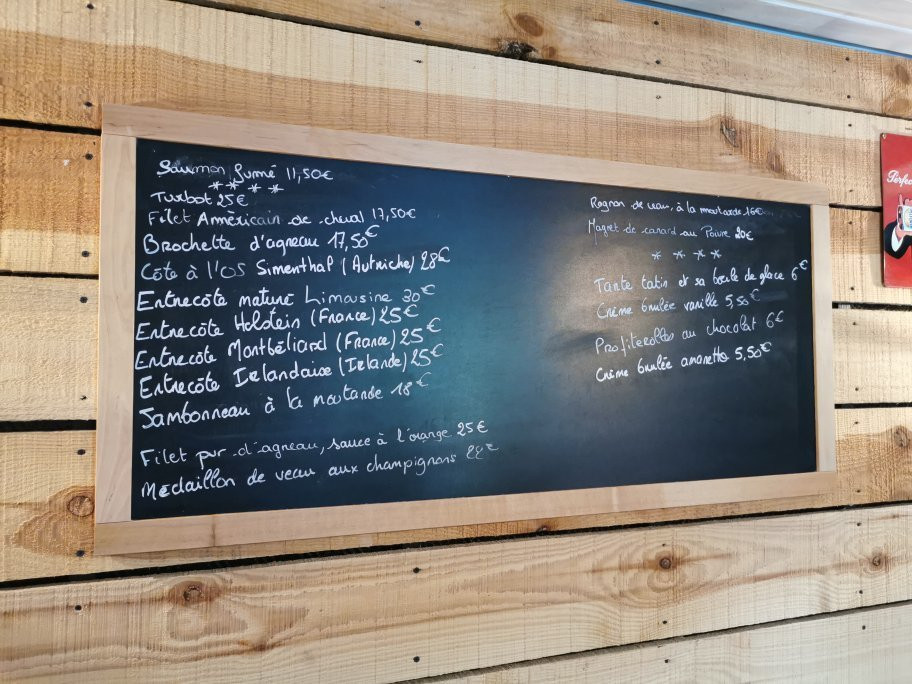 Saumon fumé 11,50€
****
Turbot 25€
Filet Américain de cheval 17,50€
Brochette d'agneau 17,50€
Côte à l'os Simenthal (Autriche) 28€
Entrecôte maturé Limousine 30€
Entrecôte Holstein (France) 25€
Entrecôte Montbéliard (France) 25€
Entrecôte Irelandaise (Irlande) 25€
Jambonneau à la moutarde 18€
Filet pur d'agneau, sauce à l'orange 25€
Médaillon de veau aux champignons 22€
Rognon de veau, à la moutarde 16€
Magret de canard au Poivre 20€
****
Tarte tatin et sa boule de glace 6€
Crème brulée vanille 5,50€
Profiterolles au chocolat 6€
Crème brulée amaretto 5,50€
Perfec